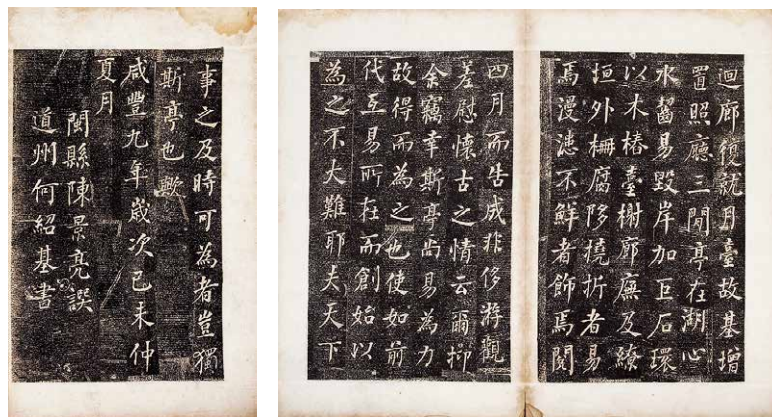 迴廊復就月臺故基增
置照廳三間亭在湖心
水齧易毀岸加巨石環
以木樁臺榭廊廡及繚
垣外柵腐陊撓折者易
焉漫漶不鮮者飾焉閱
四月而告成非侈游觀
差慰懷古之情云爾抑
余竊幸斯亭尚易為力
故得而為之也使如前
代互易所在而創始以
為之不大難耶夫天下
事之及時可為者豈獨
斯亭也歟
咸豐九年歲次己未仲
夏月
閩縣陳景亮譔
道州何紹基書